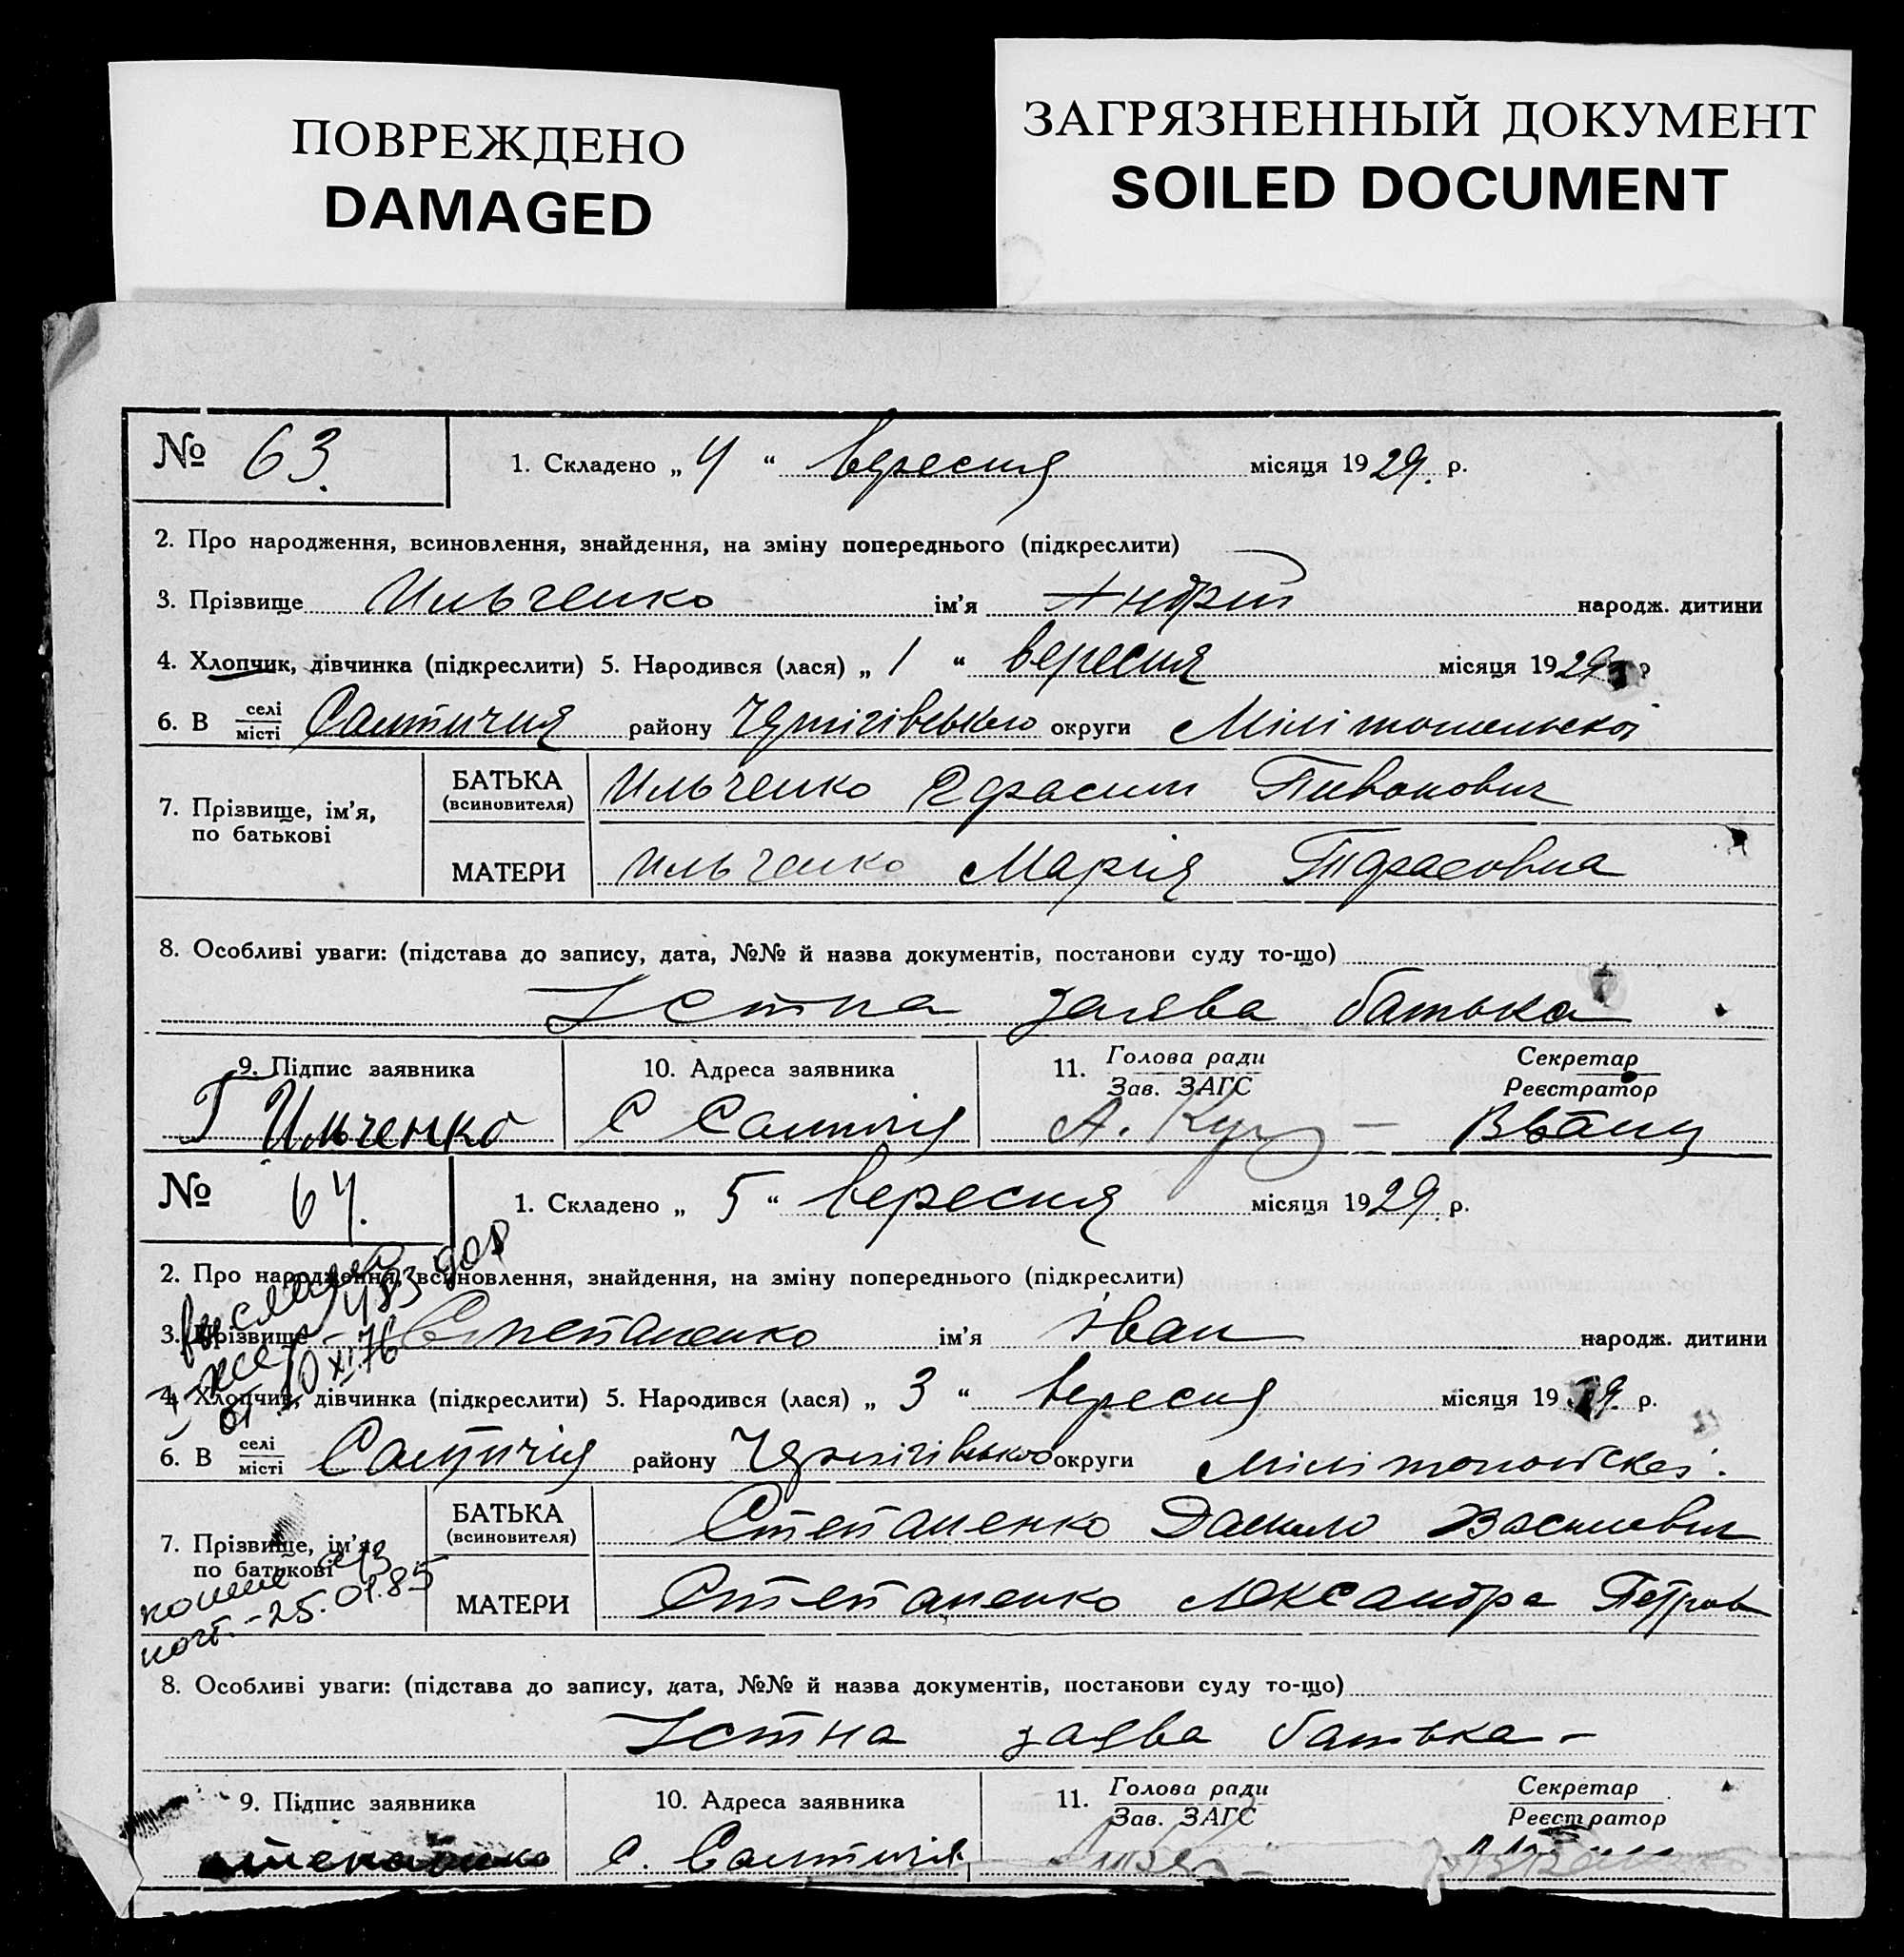 ПОВРЕЖДЕНО
DAMAGED
ЗАГРЯЗНЕННЫЙ ДОКУМЕНТ
SOILED DOCUMENT
№ 63.
1. Складено „ 4 “ вересня місяця 1929. р.
2. Про народження, всиновлення, знайдення, на зміну попереднього (підкреслити)
3. Прізвище Ильченко ім'я Андрій народж. дитини
4. Хлопчик, дівчинка (підкреслити) 5. Народився (лася) „ 1 “ вересня місяця 1929 р
6. В селі місті Салтичія району Чернігівського округи Мілітопольскої
7. Прізвище, ім'я, по батькові
БАТЬКА (всиновителя) Ильченко Пивонович
МАТЕРИ Ильченко Марія Тарасовна
8. Особливі уваги: (підстава до запису, дата, №№ й назва документів, постанови суду то-що)
Устна заява батька
9. Підпис заявника
10. Адреса заявника
11. Голова ради Зав. ЗАГС
Секретар Реєстратор
Г Ильченко С Салтичія А. Куц
№ 64.
1. Складено „ 5 “ вересня місяця 1929. р.
2. Про народження, всиновлення, знайдення, на зміну попереднього (підкреслити)
3. Прізвище Степаненко ім'я Іван народж. дитини
4. Хлопчик, дівчинка (підкреслити) 5. Народився (лася) „ 3 “ вересня місяця 1929. р.
6. В селі місті Салтичія району Чернігівського округи Мілітопольскої.
от 10 XI.76
7. Прізвище, ім'я, по батькові
БАТЬКА (всиновителя) Степаненко Данило Васильевич
МАТЕРИ Степаненко Александра Петров
-25.01.85
8. Особливі уваги: (підстава до запису, дата, №№ й назва документів, постанови суду то-що)
Устна заява батька -
9. Підпис заявника
10. Адреса заявника
11. Голова ради Зав. ЗАГС
Секретар Реєстратор
Степаненко с. Салтичія